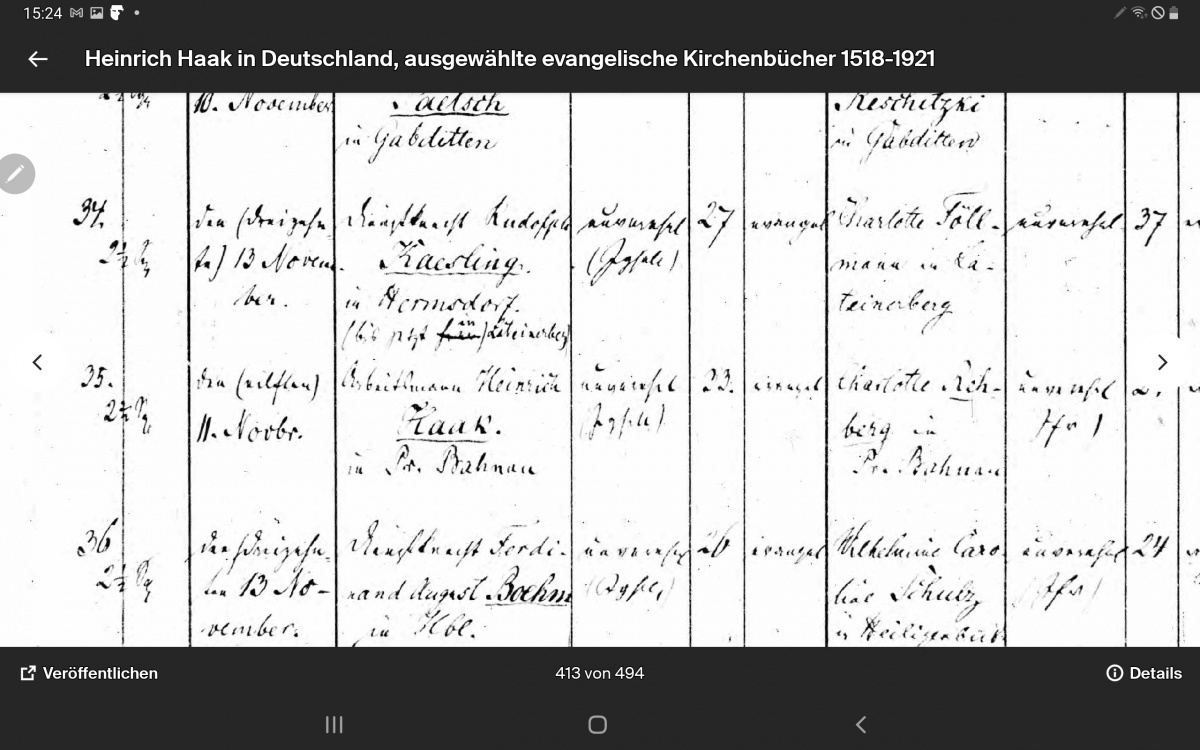 15:24
Heinrich Haak in Deutschland, ausgewählte evangelische Kirchenbücher 1518-1921
10. November
in Gabditten
Reschitzki
in Gabditten
34.
den (dreizehn-
te) 13 Novem-
ber.
Dienstknecht Rudolph
Kaesling.
in Hermsdorf.
(bis jetzt in Lateinerberg)
unverehel
(Jgsell)
27
evangel
Charlotte Föll-
mann in La-
teinerberg
unverehel.
37
35.
den (eilften)
11. Novbr.
Arbeitsmann Heinrich
Haak.
in Pr. Bahnau
unverehel
(Jgsell)
23.
evangel
Charlotte Reh-
berg in
Pr. Bahnau
unverehel
(Jfr)
36
den (dreizehn-
ten 13 No-
vember.
Dienstknecht Ferdi-
nand August Boehm
in Hbl.
unverehel
(Jgsell)
26
evangel
Wilhelmine Caro-
line Schulz
in Heiligenbeil
unverehel
(Jfr)
24
Veröffentlichen
413 von 494
Details